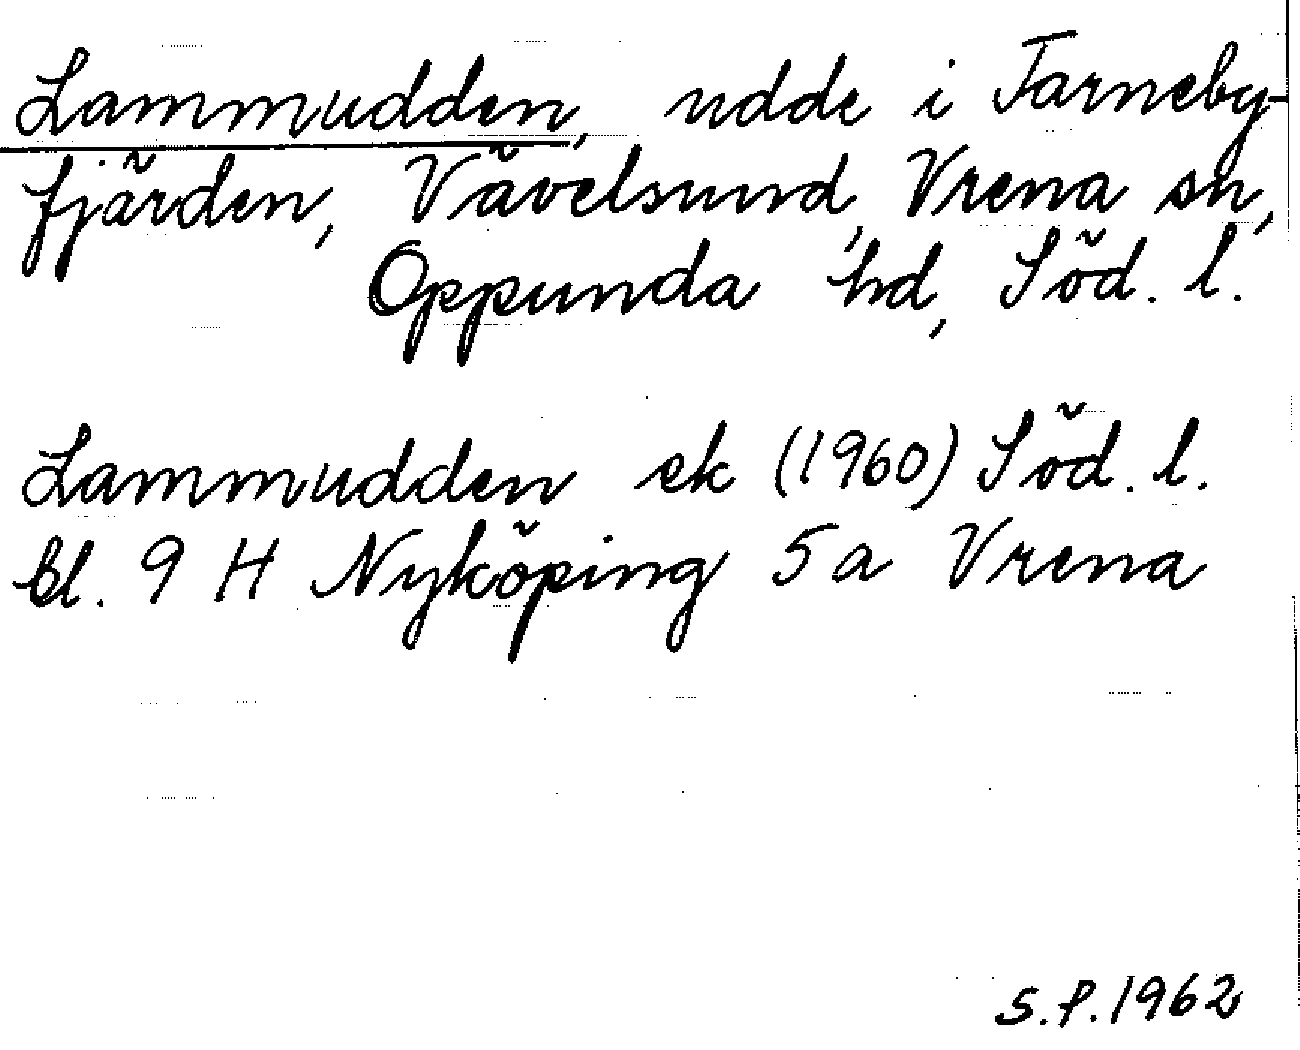 Lammudden, udde i Tarneby-
fjärden, Vävelsund, Vrena sn,
Oppunda hd, Söd. l.
Lammudden ek (1960) Söd. l.
bl. 9 H Nyköping 5a Vrena
S.P. 1962